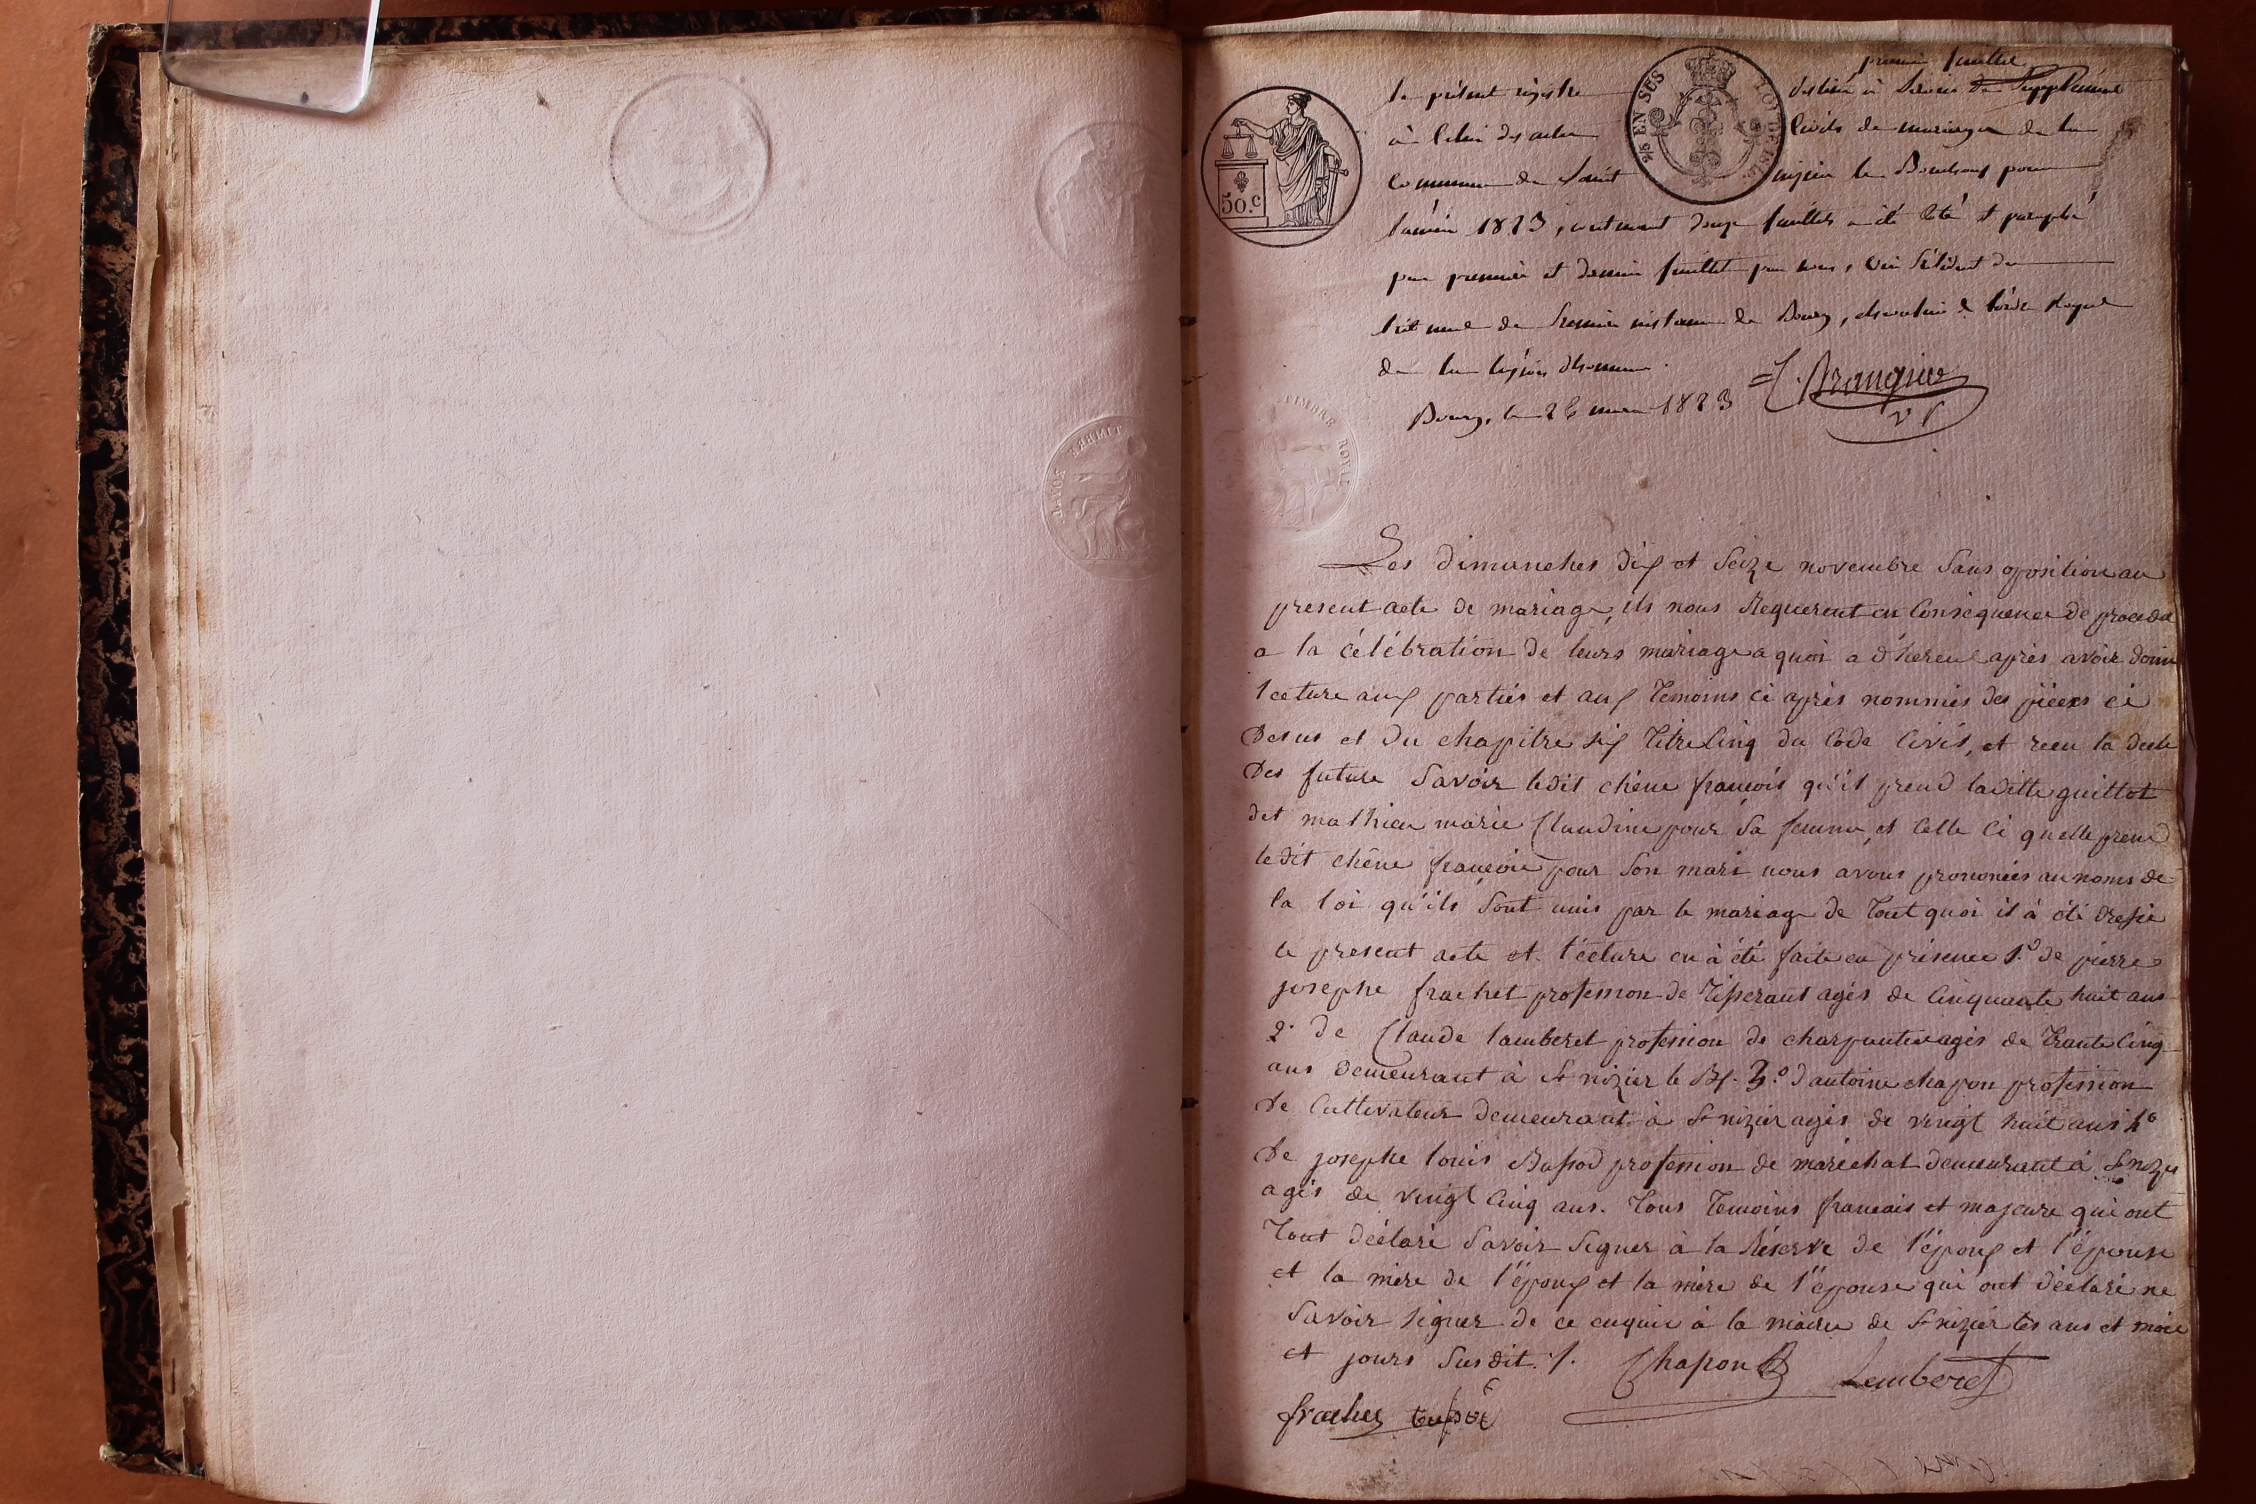 premier feuillet
le présent régistre destiné à servir de Supplément
à celui des actes civils de mariages de la
commune de Saint nizier le Bouchoux pour
l'année 1823, contenant douze feuillets a été coté et paraphé
par premier et dernier feuillet par nous, vice Président du
tribunal de Première instance de Bourg, chevalier de l'ordre Royal
de la légion d'honneur.
Bourg, le 26 1823
V P
50.C
EN SUS
TIMBRE ROYAL
Les dimanches dix et Seize novembre Sans oposition au
present acte de mariage, ils nous Requerent en Consequence de proceder
a la célébration de leurs mariage a quoi a d'héreul après avoir donné
lecture aux parties et aux Temoins ci après nommiés des pièces ci
desus et du chapitre six Titre Cinq du Code Civil, et recu la decla
des future Savoir ledit chêne francois qu'il prend laditte guillot
dit mathieu marie Claudine pour Sa femme, et Celle Ci quelle prend
ledit chêne francois pour Son mari nous avons prononcées au noms de
la loi qu'ils Sont unis par le mariage de Tout quoi il à été dressé
le present acte et lécture en à été faite en présence 1.º de pierre
josephe frachet profession de Tisserant agés de Cinquante huit ans
2. de Claude lamberet profession de charpantier agés de Trante Cinq
ans demeurant à St nizier le Bx. 3.º d'antoine chapon profession
de Cultivateur demeurant à St nizier agés de vingt huit ans 4º
de josephe louis Bussod profession de maréchal demeurant à St nizier
agés de vingt Cinq ans. Tous Temoins francais et majeure qui ont
Tout déclaré Savoir Signer à la Réserve de l'époux et l'épouse
et la mère de l'époux et la mère de l'épouse qui ont déclaré ne
Savoir Signer de ce enquis à la mairie de St nizier les ans et mois
et jours Susdit ./. Chapon Lamberet
frachet